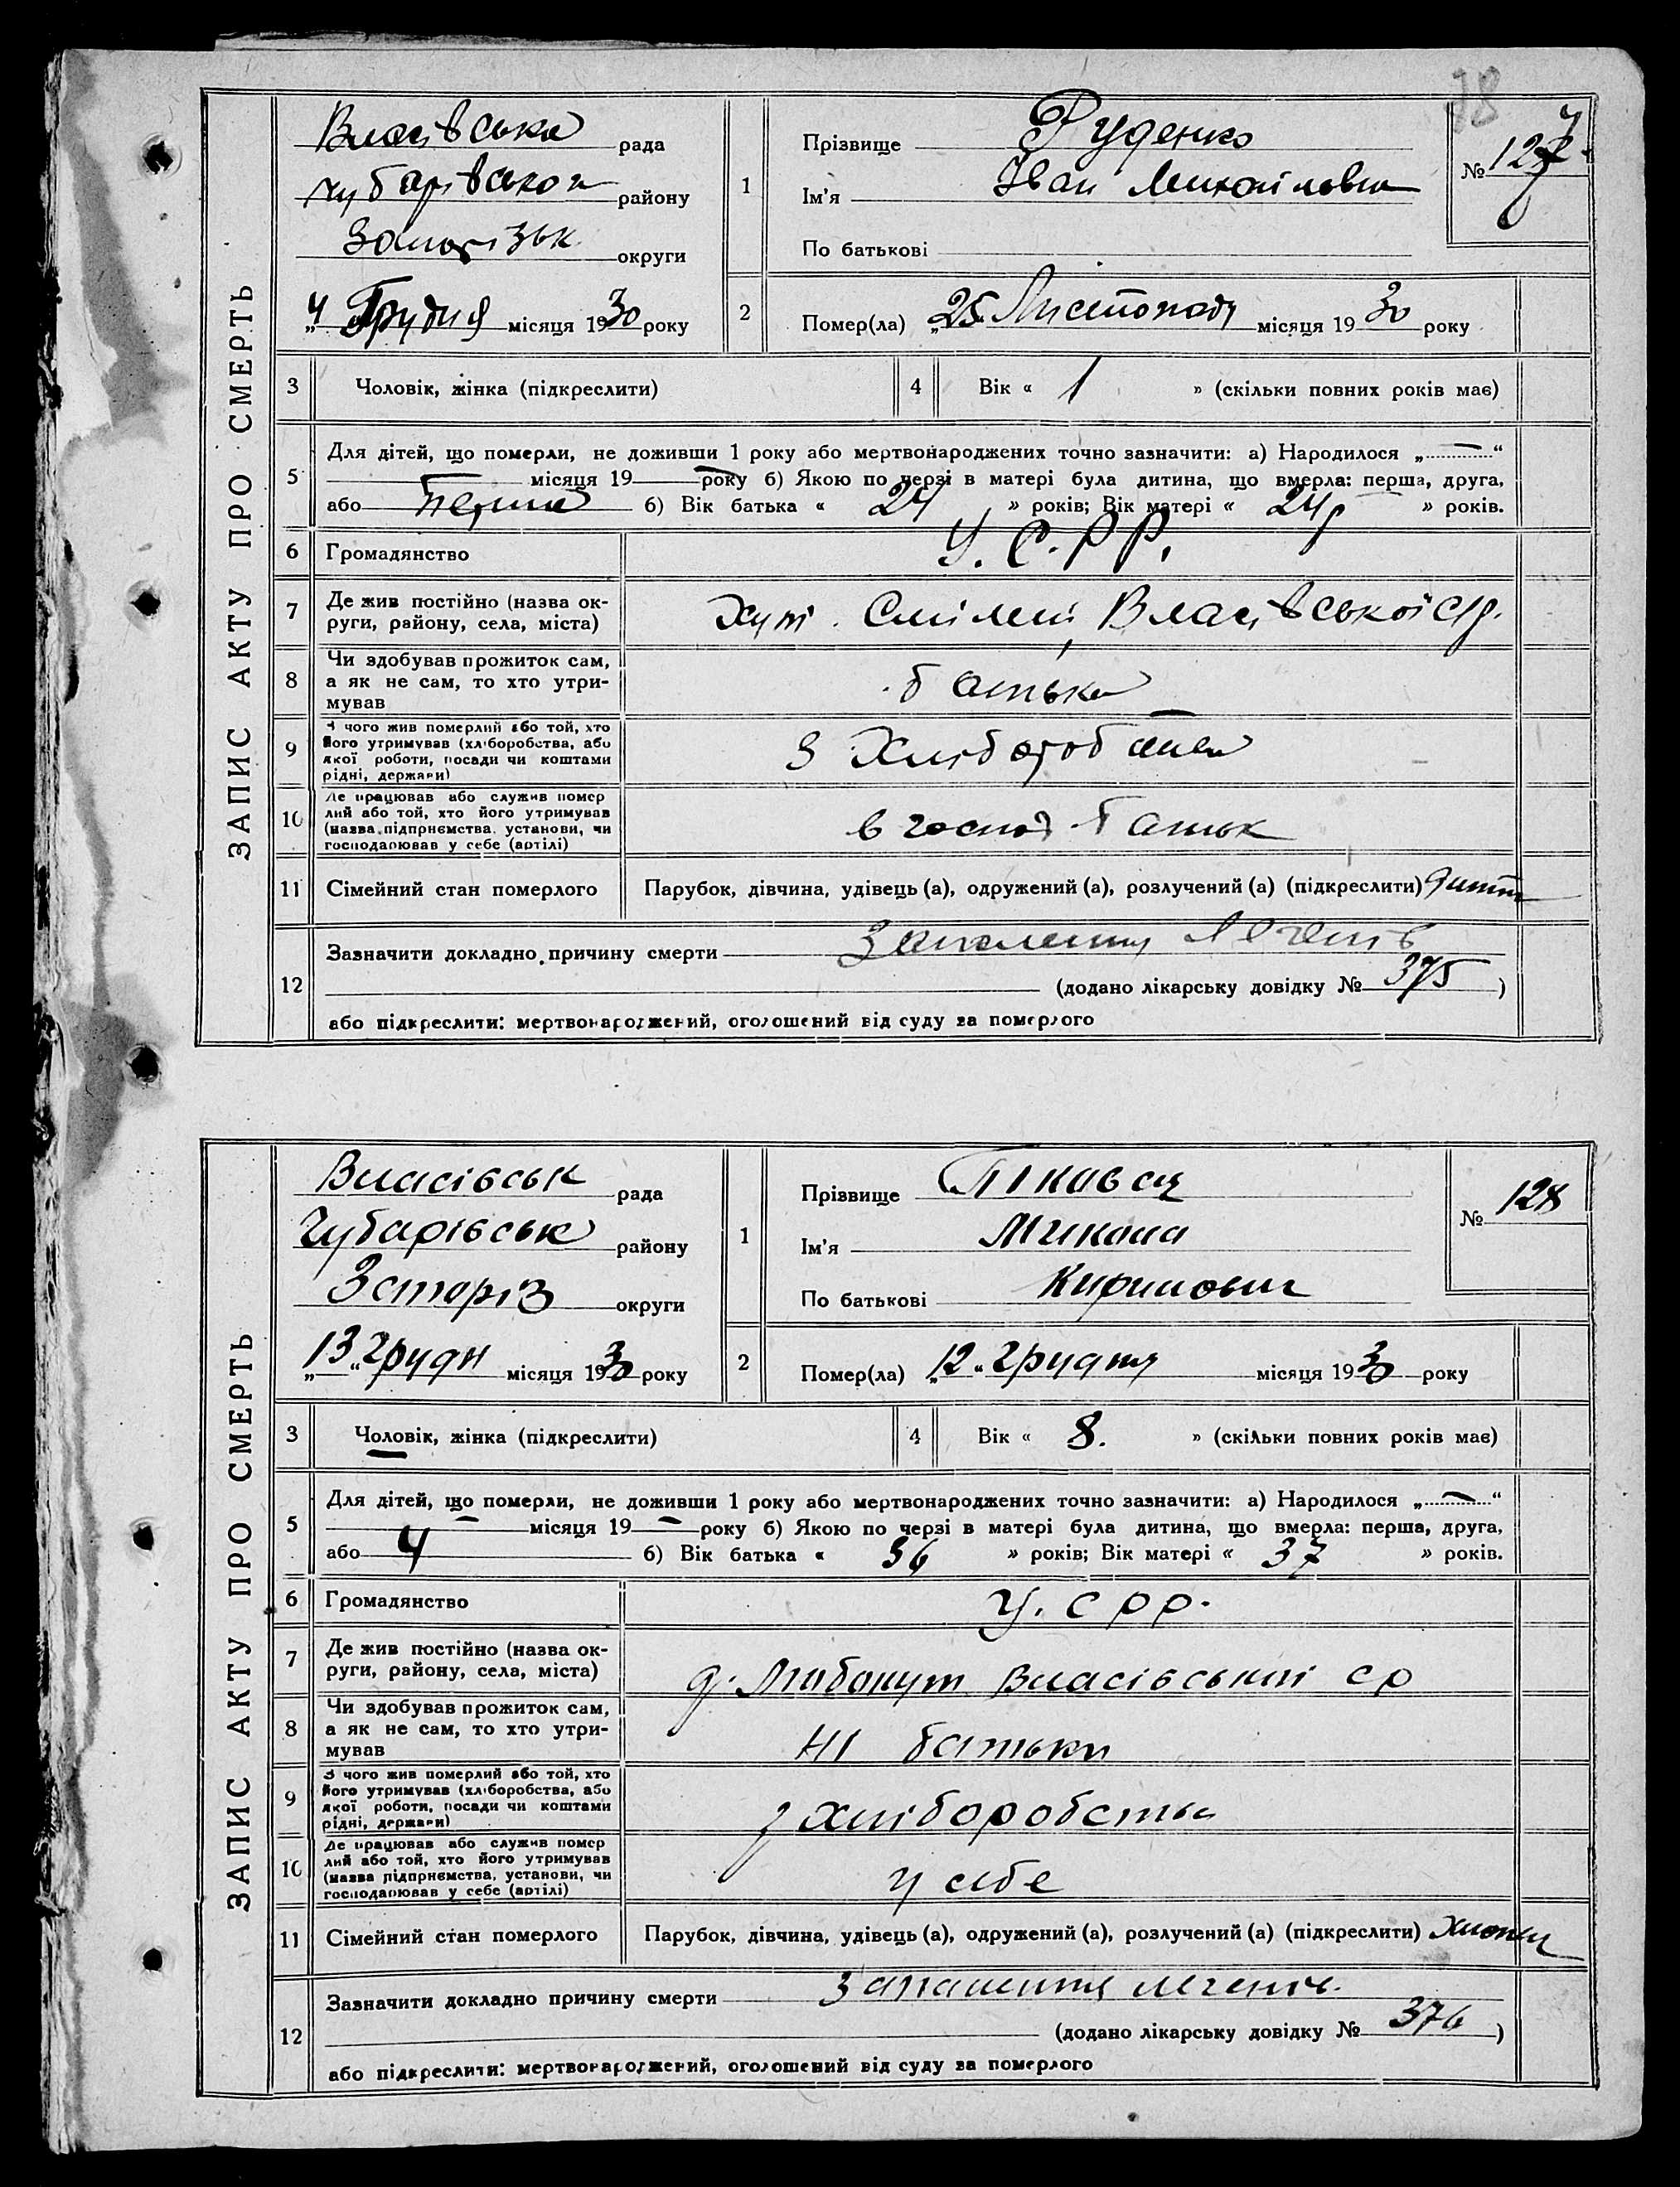 78
ЗАПИС АКТУ ПРО СМЕРТЬ
Власівська рада
Чубарівського району
округи
„4“ Грудня місяця 1930 року
1
Прізвище Руденко
Ім'я Іван
По батькові
№ 127
2
Помер(ла) „25“ Листопада місяця 1930 року
3 Чоловік, жінка (підкреслити)
4 Вік « 1 » (скільки повних років має)
5
Для дітей, що померли, не доживши 1 року або мертвонароджених точно зазначити: а) Народилося „—“
місяця 19— року б) Якою по черзі в матері була дитина, що вмерла: перша, друга,
або перша б) Вік батька « 24 » років; Вік матері « 24 р » років.
6 Громадянство У. С. Р Р.
7 Де жив постійно (назва ок-
руги, району, села, міста)
хут. Власівської с/р.
8 Чи здобував прожиток сам,
а як не сам, то хто утри-
мував
батько
9 З чого жив померлий або той, хто
його утримував (хліборобства, або
якої роботи, посади чи коштами
рідні, держави)
З Хліборобства
10 Де працював або служив помер
лий або той, хто його утримував
(назва підприємства, установи, чи
господарював у себе (артілі)
в господ. батьк
11 Сімейний стан померлого Парубок, дівчина, удівець (а), одружений (а), розлучений (а) (підкреслити) дитя
12 Зазначити докладно причину смерти Запалення легенів
(додано лікарську довідку № 375)
або підкреслити: мертвонароджений, оголошений від суду за померлого
ЗАПИС АКТУ ПРО СМЕРТЬ
Власівськ рада
Чубарівськ району
округи
„13“ грудн місяця 1930 року
1
Прізвище
Ім'я Микола
По батькові Кирилович
№ 128
2
Помер(ла) „12“ грудня місяця 1930 року
3 Чоловік, жінка (підкреслити)
4 Вік « 8. » (скільки повних років має)
5
Для дітей, що померли, не доживши 1 року або мертвонароджених точно зазначити: а) Народилося „—“
— місяця 19— року б) Якою по черзі в матері була дитина, що вмерла: перша, друга,
або 4 б) Вік батька « 36 » років; Вік матері « 37 » років.
6 Громадянство У. С р р.
7 Де жив постійно (назва ок-
руги, району, села, міста)
Власівський с р
8 Чи здобував прожиток сам,
а як не сам, то хто утри-
мував
Ні батьки
9 З чого жив померлий або той, хто
його утримував (хліборобства, або
якої роботи, посади чи коштами
рідні, держави)
з хліборобства
10 Де працював або служив помер
лий або той, хто його утримував
(назва підприємства, установи, чи
господарював у себе (артілі)
у себе
11 Сімейний стан померлого Парубок, дівчина, удівець (а), одружений (а), розлучений (а) (підкреслити) хлопец
12 Зазначити докладно причину смерти Запалення легенів.
(додано лікарську довідку № 376)
або підкреслити: мертвонароджений, оголошений від суду за померлого